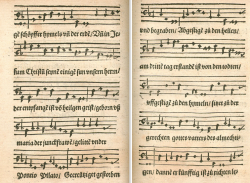 schöpffer himels vnd der erden/
sum Christū seynē einigē sun vnsern herrn/
der empfangē ist vō heilgen geist/geborn vß
maria der junckfrawē/gelidē vnder
Pontio Pilato/ Gecreütziget gestorben
vnd begraben/ Abgestigē zu den hellen/
am dritē tag erstandē ist von den todten/
vffgestigē zu den himeln/ sitzet zu der
gerechten gottes vatters des almechti-
gen/ dannē er künfftig ist zu richten